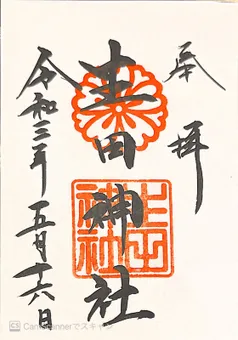 奉拝
生田神社
生田神社
令和三年五月十六日
CS CamScannerでスキャン